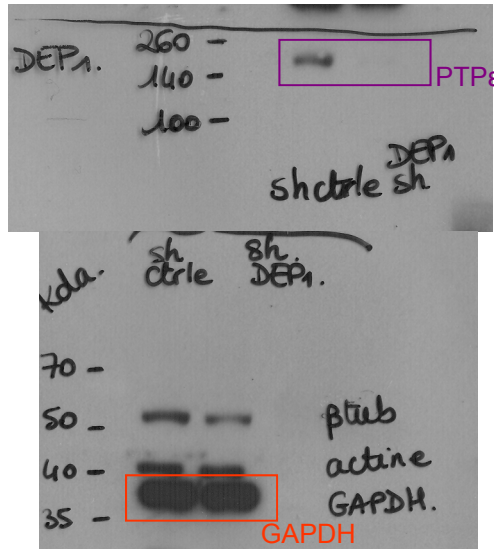 DEP1.
260 -
140 -
100 -
PTPε
DEP1
sh ctrle sh
kda.
sh 8h.
ctrle DEP1.
70 -
50 -
βtub
40 -
actine
GAPDH.
35 -
GAPDH